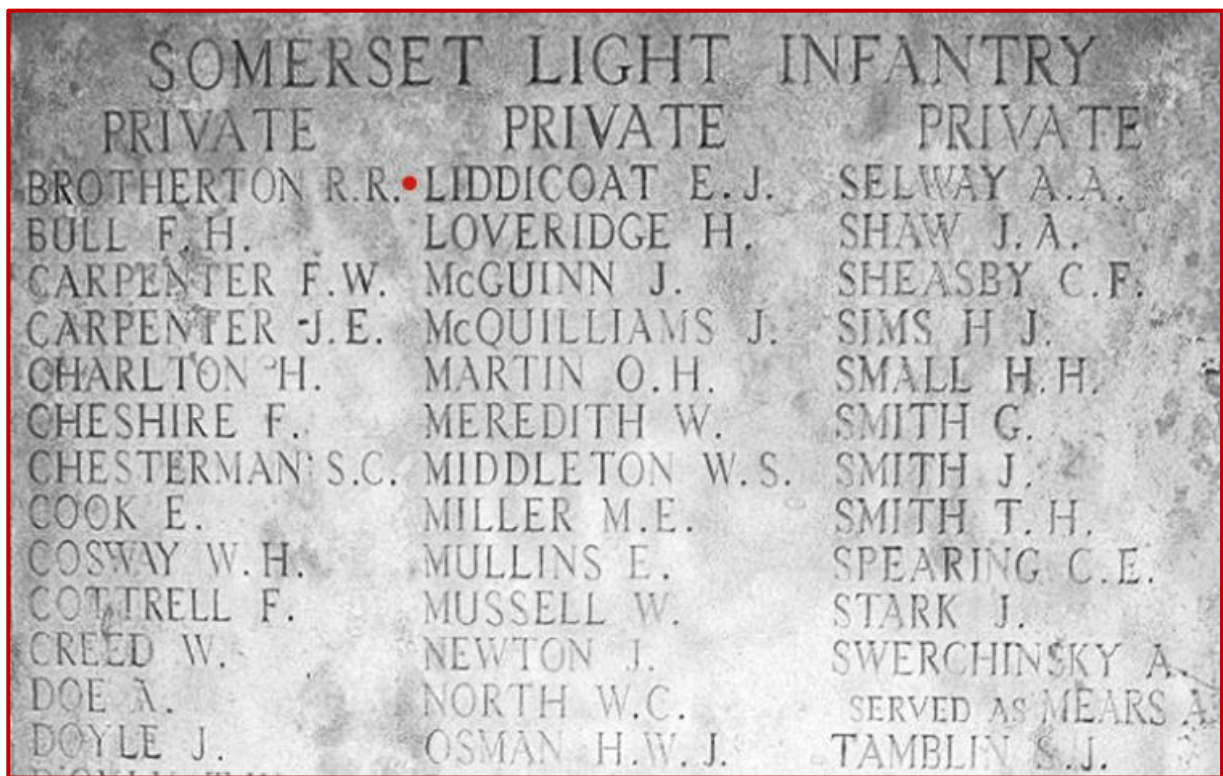 SOMERSET LIGHT INFANTRY
PRIVATE
BROTHERTON R.R.
BULL F.H.
CARPENTER F.W.
CARPENTER J.E.
CHARLTON H.
CHESHIRE F.
CHESTERMAN S.C.
COOK E.
COSWAY W.H.
COTTRELL F.
CREED W.
DOE A.
DOYLE J.
PRIVATE
LIDDICOAT E.J.
LOVERIDGE H.
McGUINN J.
McQUILLIAMS J.
MARTIN O.H.
MEREDITH W.
MIDDLETON W.S.
MILLER M.E.
MULLINS E.
MUSSELL W.
NEWTON J.
NORTH W.C.
OSMAN H.W.J.
PRIVATE
SELWAY A.A.
SHAW J.A.
SHEASBY C.F.
SIMS H J.
SMALL H.H.
SMITH G.
SMITH J.
SMITH T.H.
SPEARING C.E.
STARK J.
SWERCHINSKY A.
SERVED AS MEARS A
TAMBLIN S.J.